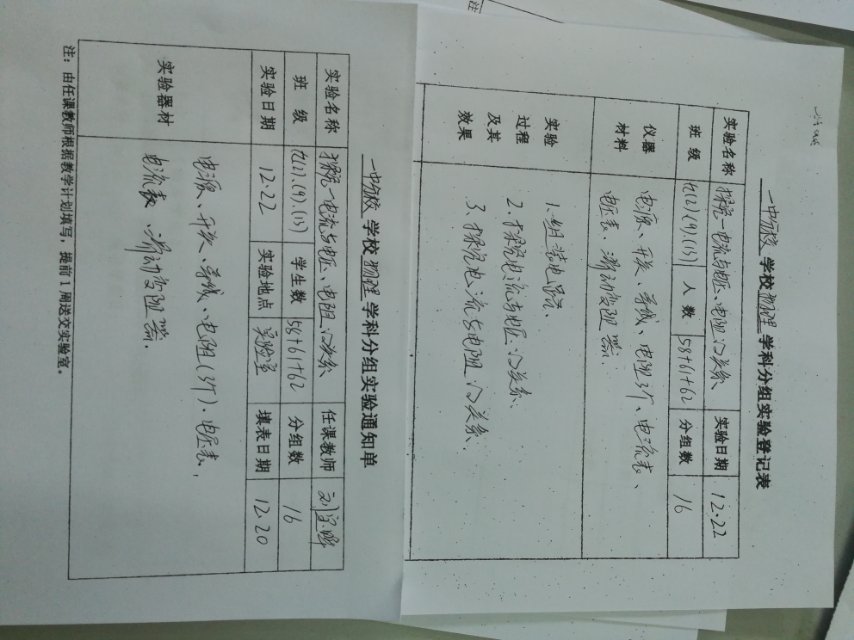 一中分校 学校 物理 学科分组实验登记表
实验名称 探究一电流与电压、电阻的关系 实验日期 12.22
班级 九(2)、(9)、(13) 人数 58+61+62 分组数 16
仪器材料 电源、开关、导线、电阻3个、电流表、
电压表、滑动变阻器.
实验过程及其效果 1.组装电路.
2.探究电流与电压的关系.
3.探究电流与电阻的关系.
一中分校 学校 物理 学科分组实验通知单
实验名称 探究一电流与电压、电阻的关系 任课教师
班级 九(2)、(9)、(13) 学生数 58+61+62 分组数 16
实验日期 12.22 实验地点 实验室 填表日期 12.20
实验器材 电源、开关、导线、电阻(3个)、电压表、
电流表、滑动变阻器.
注：由任课教师根据教学计划填写，提前1周送交实验室。